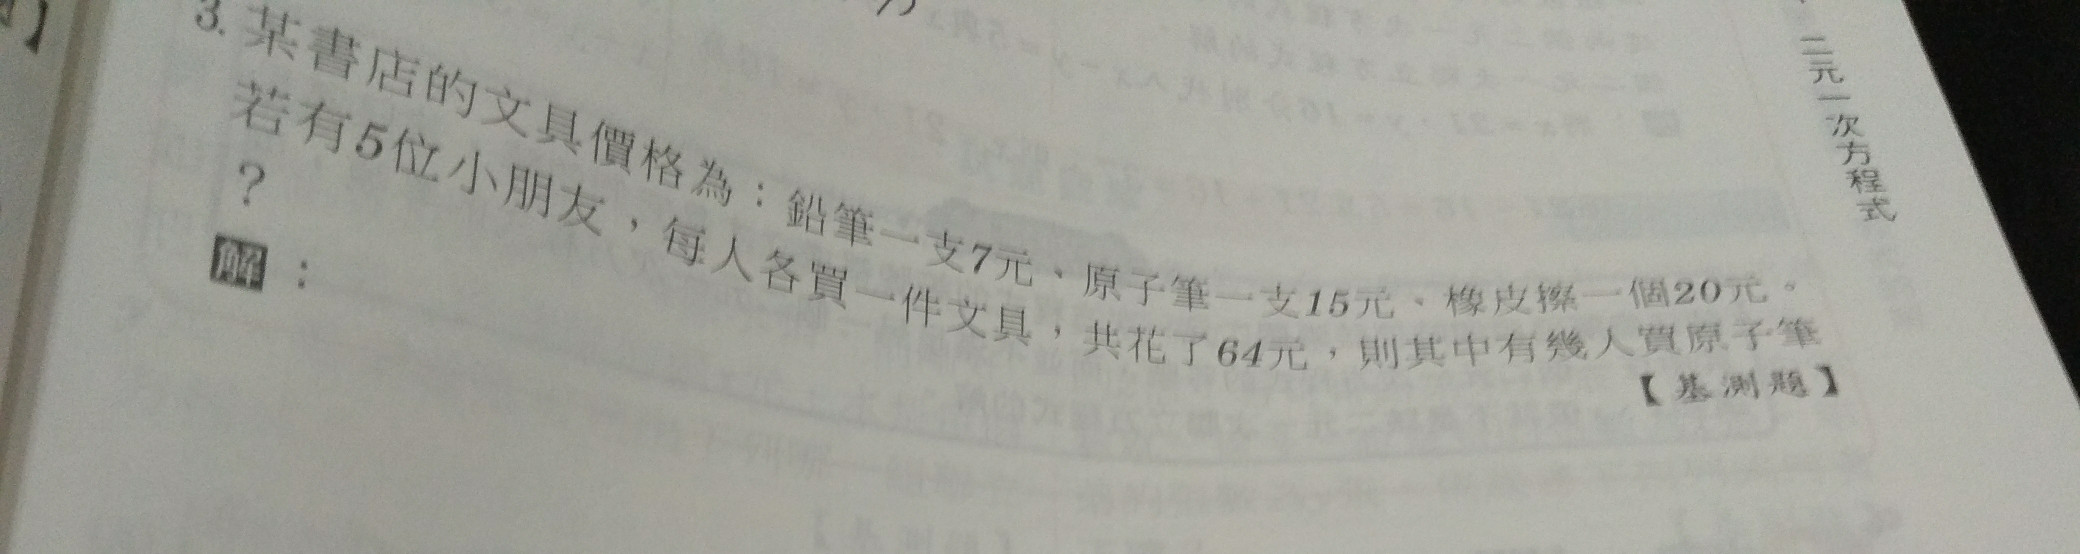 3. 某書店的文具價格為：鉛筆一支7元、原子筆一支15元、橡皮擦一個20元。
若有5位小朋友，每人各買一件文具，共花了64元，則其中有幾人買原子筆
？
【基測題】
解：
二元一次方程式